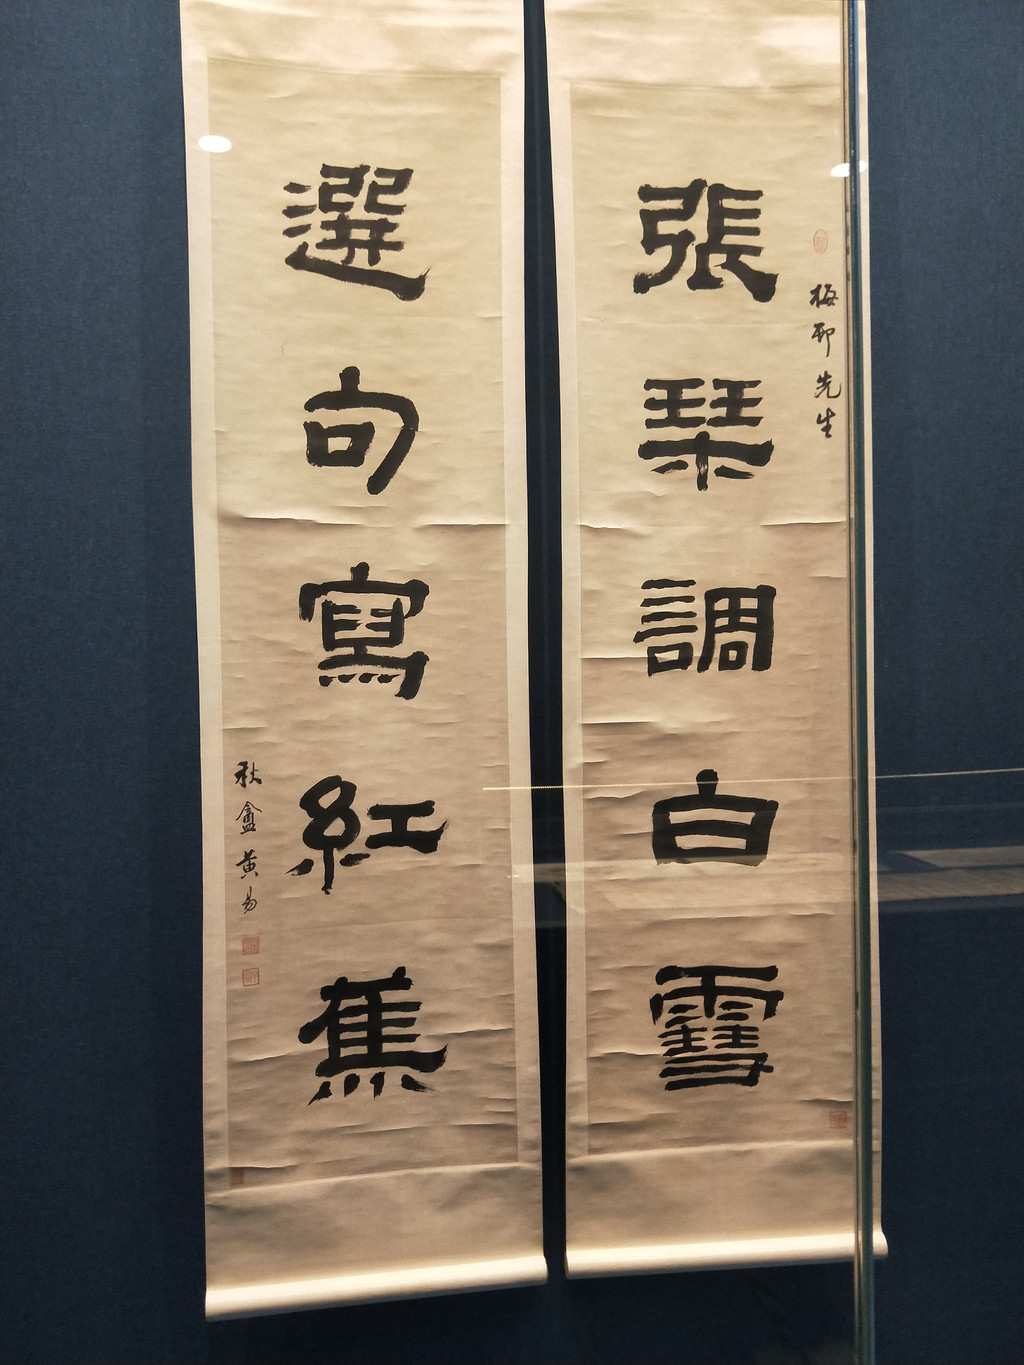 梅邨先生
張琹調白雪
選句寫紅蕉
秋盦黄易